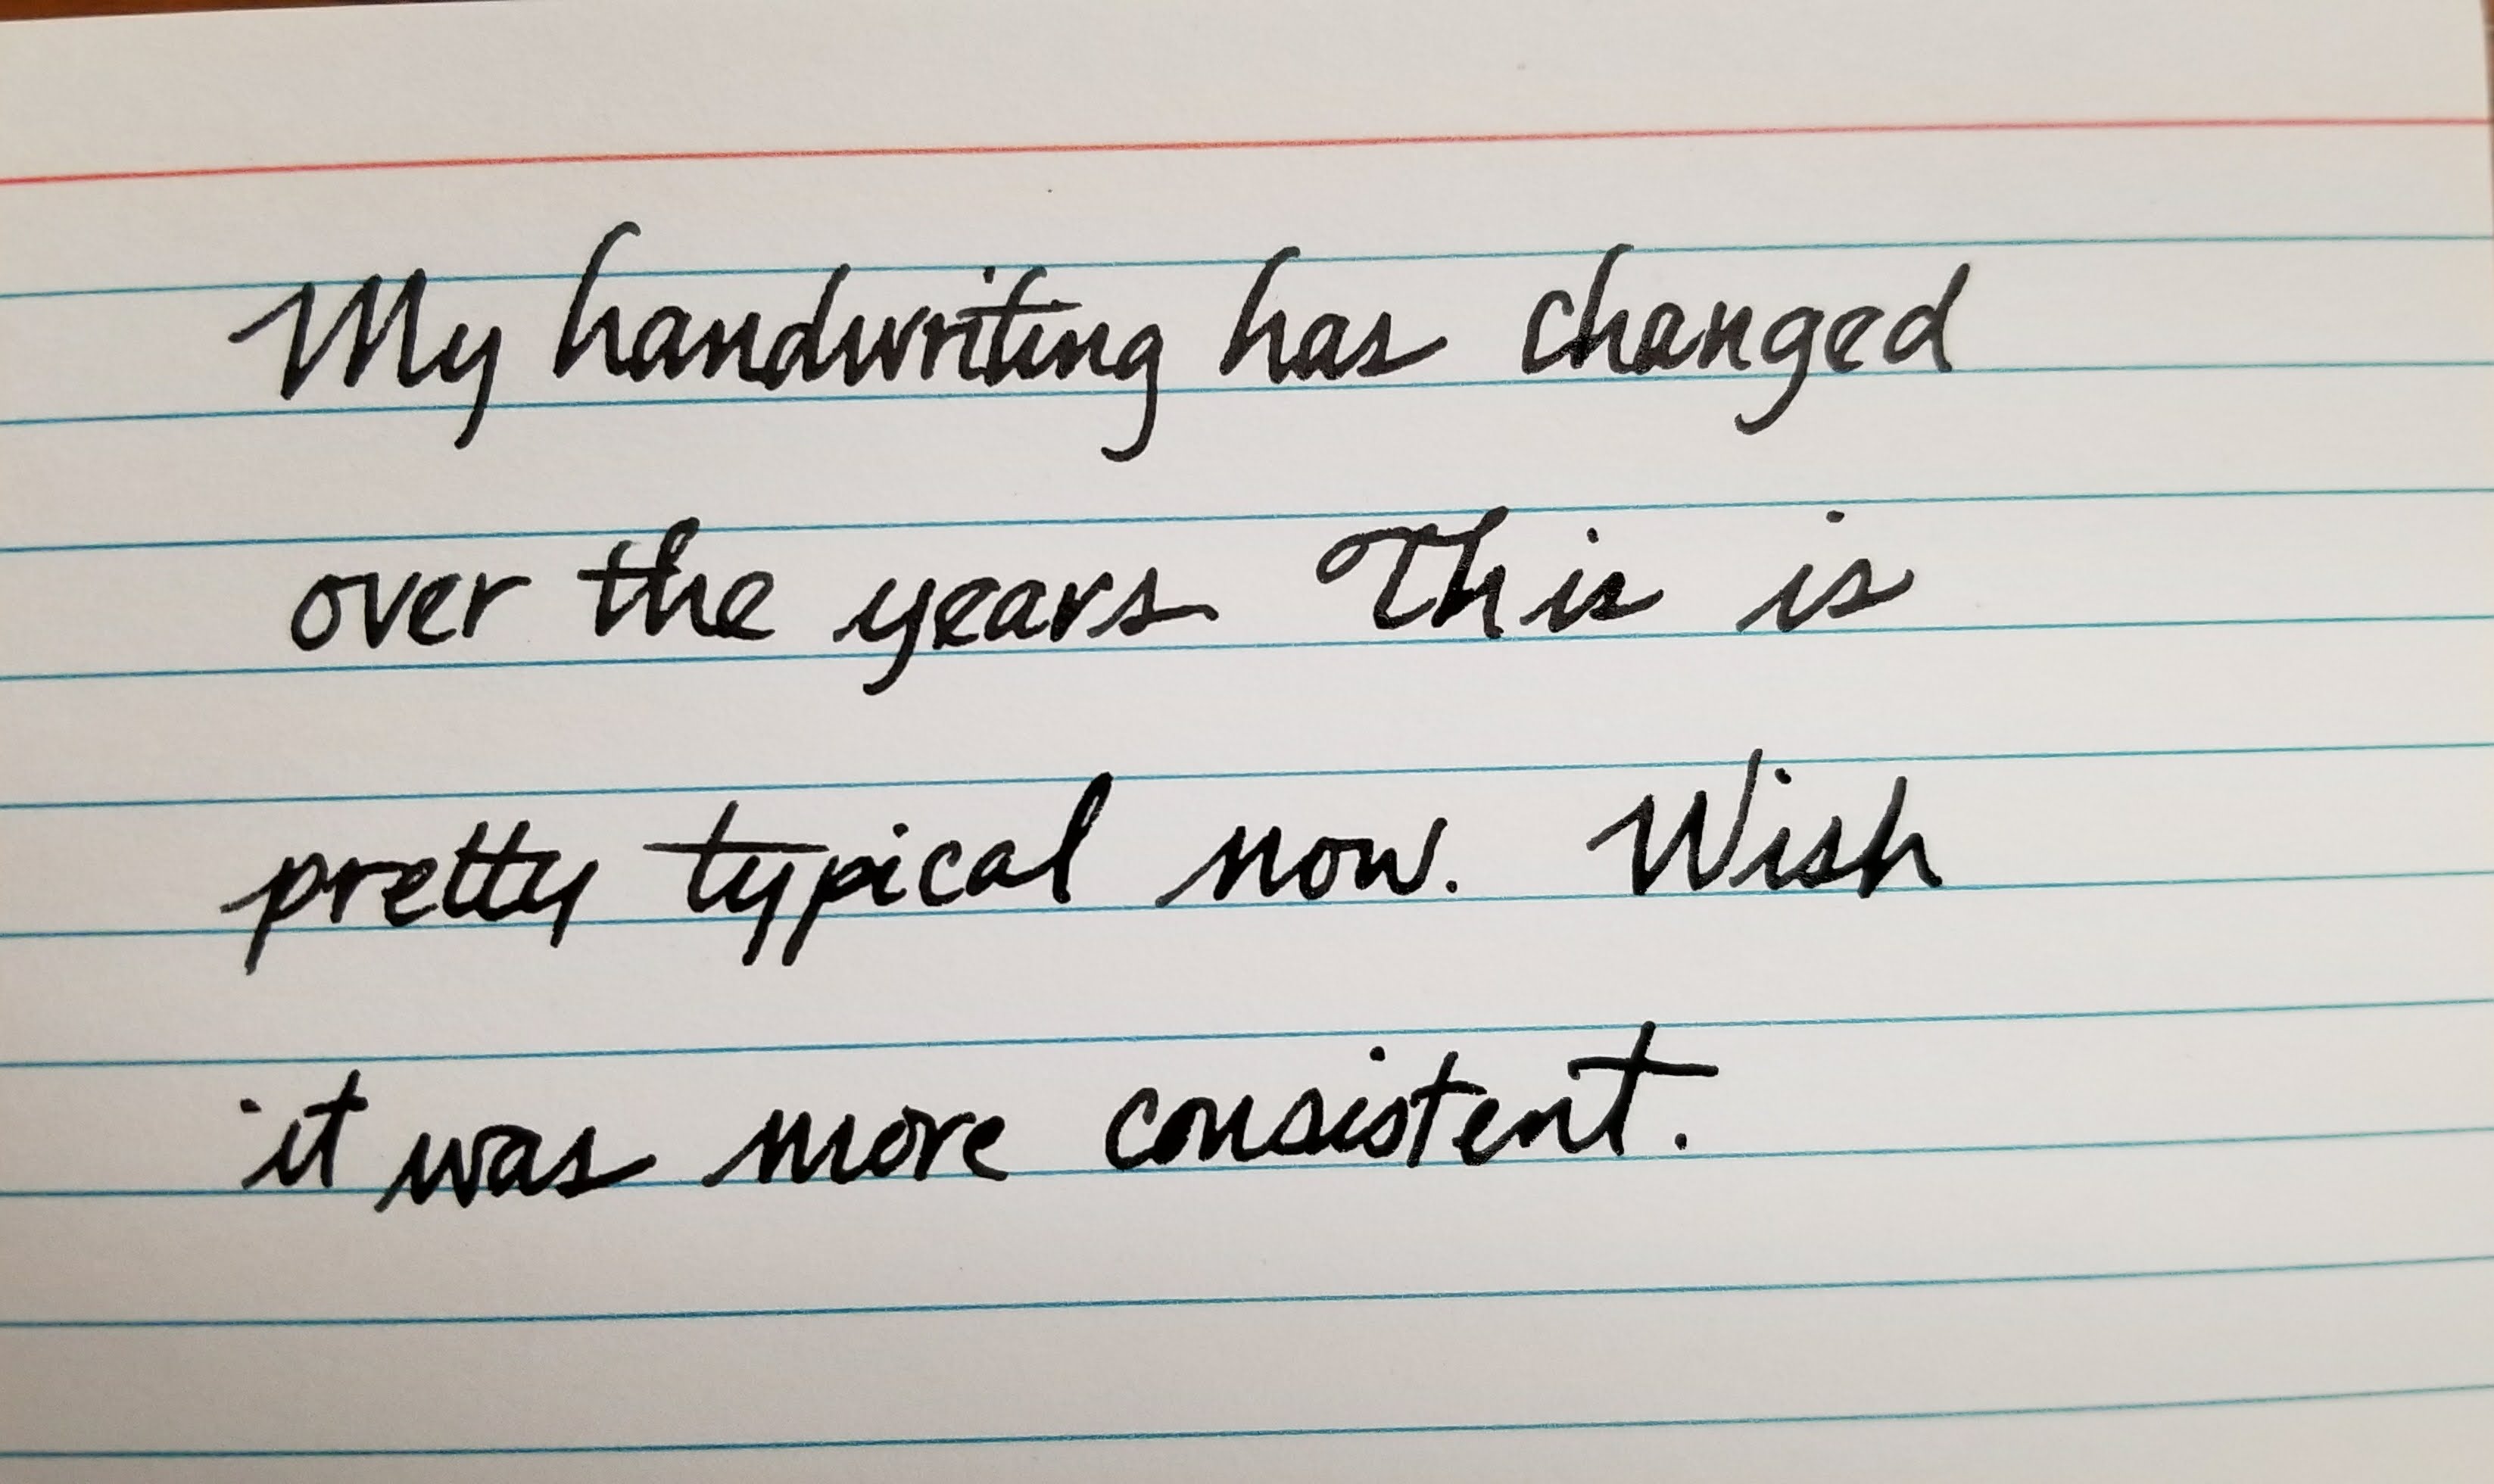 My handwriting has changed
over the years This is
pretty typical now. Wish
it was more consistent.